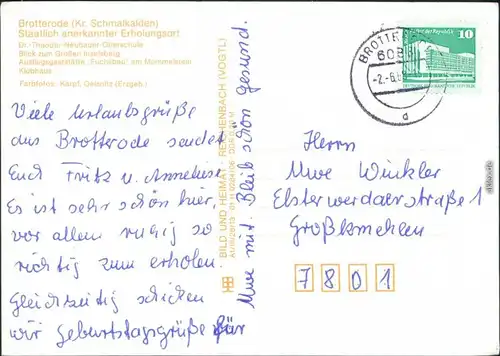 Brotterode (Kr. Schmalkalden)
Staatlich anerkannter Erholungsort
Dr.-Theodor-Neubauer-Oberschule
Blick zum Großen Inselsberg
Ausflugsgaststätte „Fuchsbau" am Mommelstein
Klubhaus
Farbfotos: Kärpf, Oelsnitz (Erzgeb.)
Viele Urlaubsgrüße
aus Brotterode sendet
Euch Fritz u. Anneliese
Es ist sehr schön hier,
vor allem ruhig so
richtig zum erholen.
Gleichzeitig schicken
wir Geburtstagsgrüße für
Uwe mit. Bleib schön gesund.
BILD UND HEIMAT REICHENBACH (VOGTL)
BROTTEROD
608
-2.-6.
d
10
Palast der Republik
Herrn
Uwe Winkler
Elsterwerdaer straße 1
Großkmehlen
7801